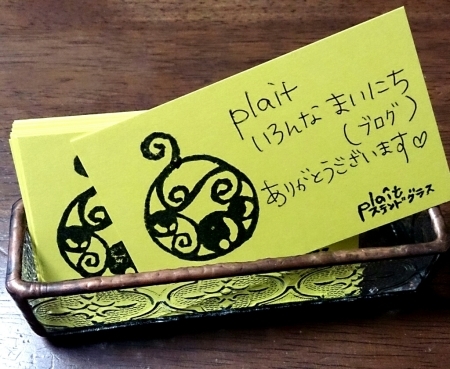 plaît
いろんな まいにち
(ブログ)
ありがとうございます♡
plaît
ステンドグラス